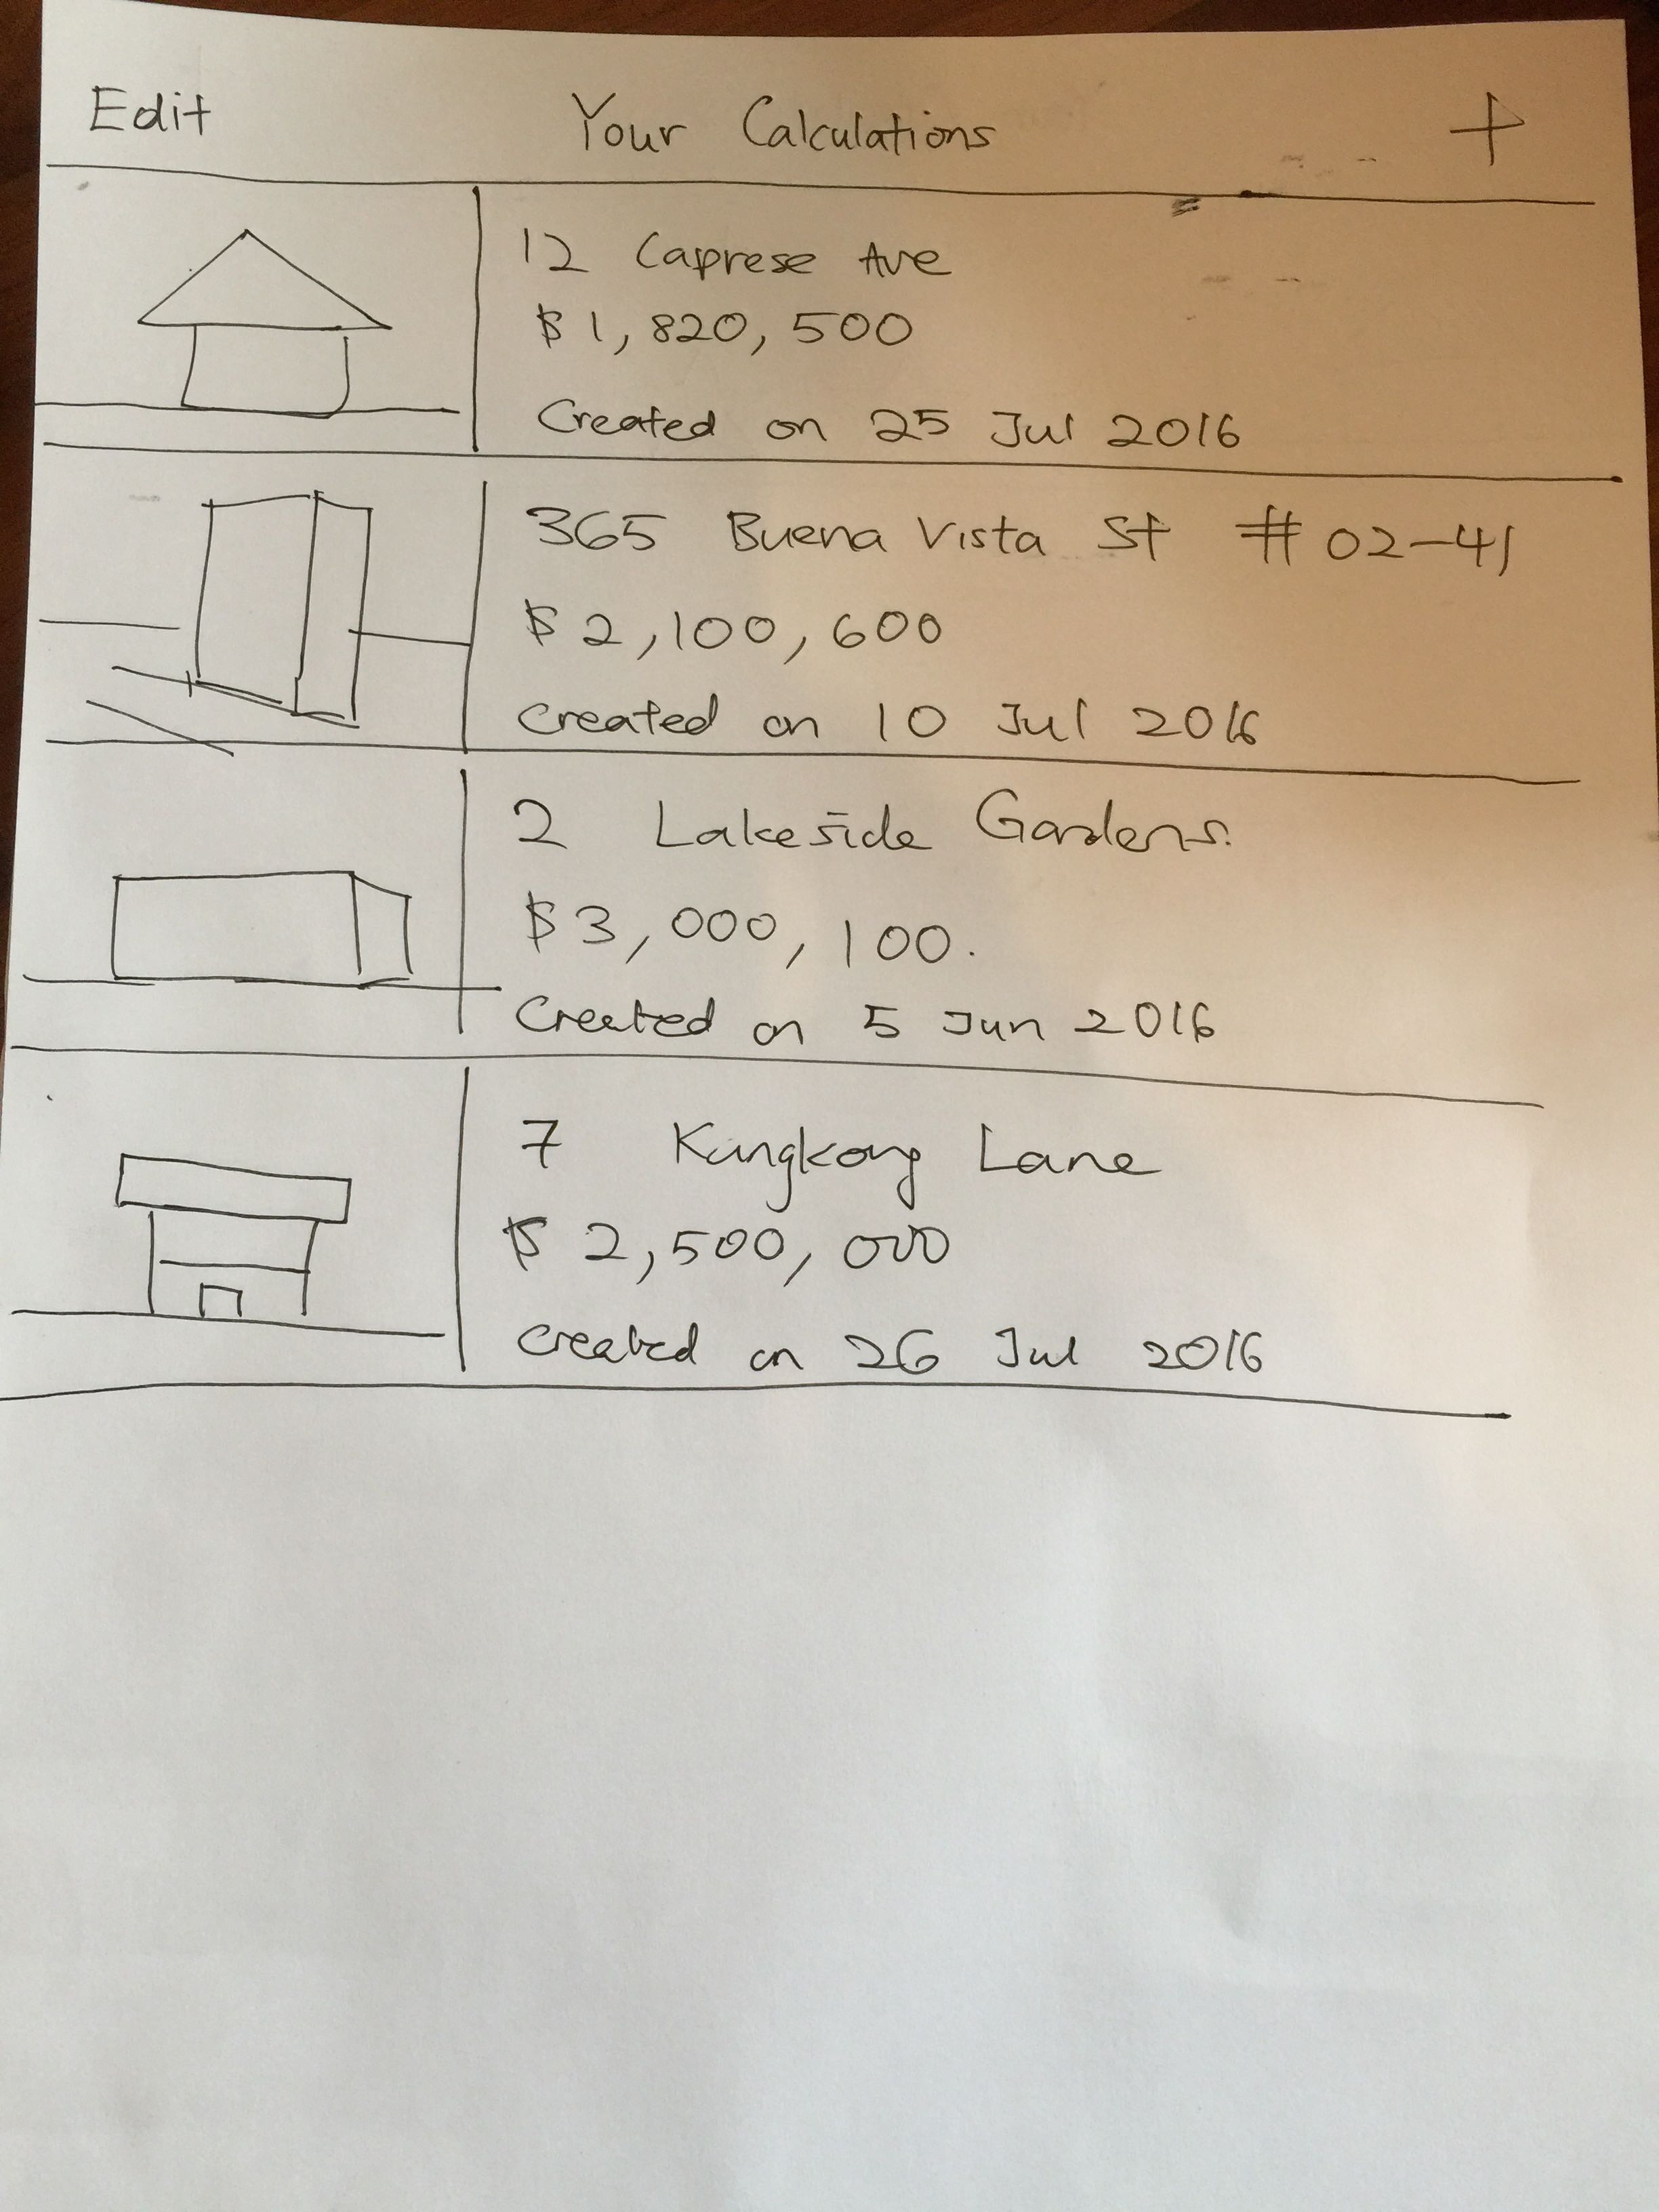 Edit Your Calculations +
12 Caprese Ave
$1,820,500
Created on 25 Jul 2016
365 Buena Vista St #02-41
$2,100,600
Created on 10 Jul 2016
2 Lakeside Gardens.
$3,000,100.
Created on 5 Jun 2016
7 Kungkong Lane
$2,500,000
Created on 26 Jul 2016